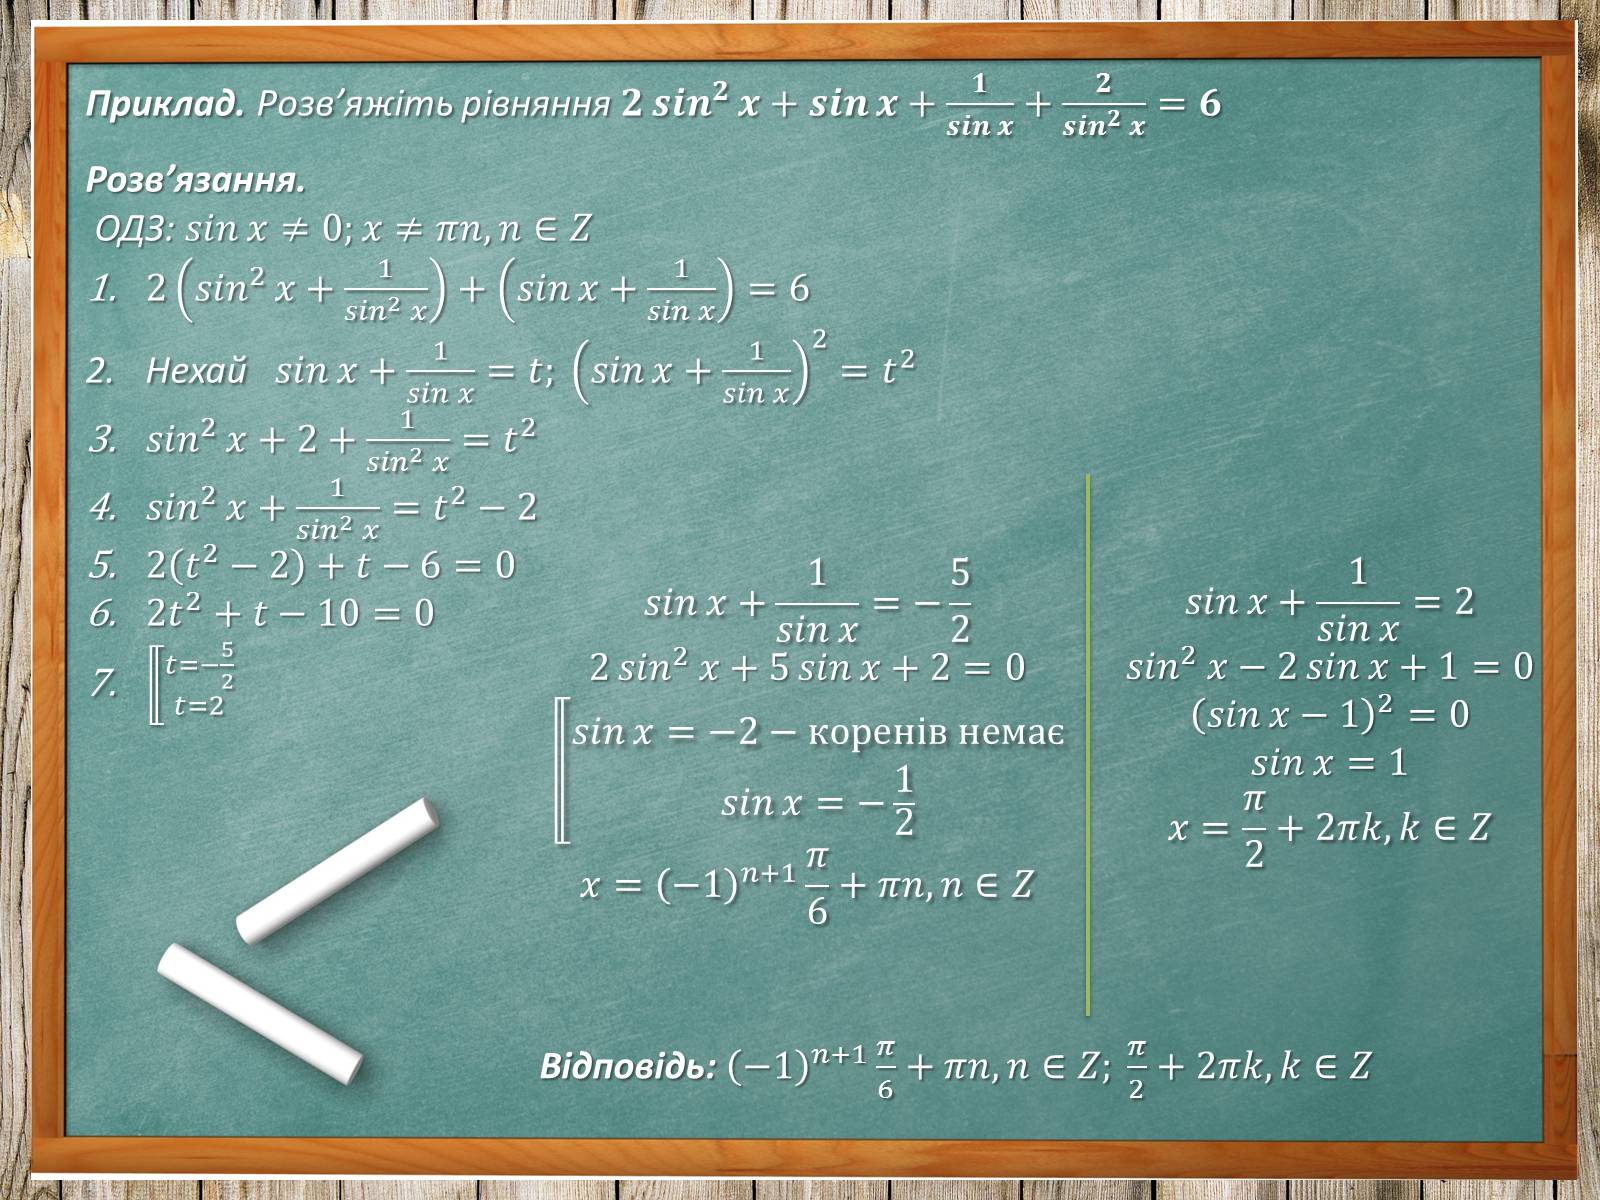 Приклад. Розв’яжіть рівняння 2 sin² x + sin x + 1/(sin x) + 2/(sin² x) = 6
Розв’язання.
ОДЗ: sin x ≠ 0; x ≠ πn, n ∈ Z
1. 2(sin² x + 1/(sin² x)) + (sin x + 1/(sin x)) = 6
2. Нехай sin x + 1/(sin x) = t; (sin x + 1/(sin x))² = t²
3. sin² x + 2 + 1/(sin² x) = t²
4. sin² x + 1/(sin² x) = t² − 2
5. 2(t² − 2) + t − 6 = 0
6. 2t² + t − 10 = 0
7. [t=−5/2
t=2
sin x + 1/(sin x) = −5/2
2 sin² x + 5 sin x + 2 = 0
[sin x = −2 − коренів немає
sin x = −1/2
x = (−1)ⁿ⁺¹ π/6 + πn, n ∈ Z
sin x + 1/(sin x) = 2
sin² x − 2 sin x + 1 = 0
(sin x − 1)² = 0
sin x = 1
x = π/2 + 2πk, k ∈ Z
Відповідь: (−1)ⁿ⁺¹ π/6 + πn, n ∈ Z; π/2 + 2πk, k ∈ Z